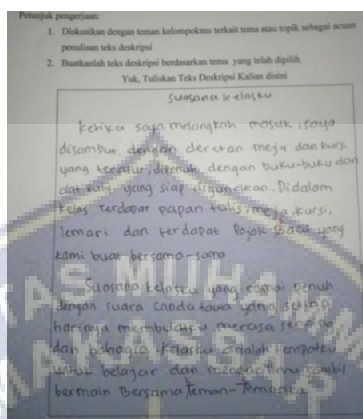 Petunjuk pengerjaan:
1. Diskusikan dengan teman kelompokmu terkait tema atau topik sebagai acuan
penulisan teks deskripsi
2. Buatkanlah teks deskripsi berdasarkan tema yang telah dipilih
Yuk, Tuliskan Teks Deskripsi Kalian disini
Suasana kelasku
Ketika saya melangkah masuk, saya
disambut dengan deretan meja dan kursi
yang teratur, dipenuhi dengan buku-buku dan
alat tulis yang siap digunakan. Didalam
kelas terdapat papan tulis, meja, kursi,
lemari dan terdapat Pojok baca yang
kami buat bersama-sama
Suasana kelasku yang ramai penuh
dengan suara canda tawa yang setiap
harinya membuatku merasa
dan bahagia. Kelasku adalah tempatku
untuk belajar dan ilmu sambil
bermain Bersama teman-temanku